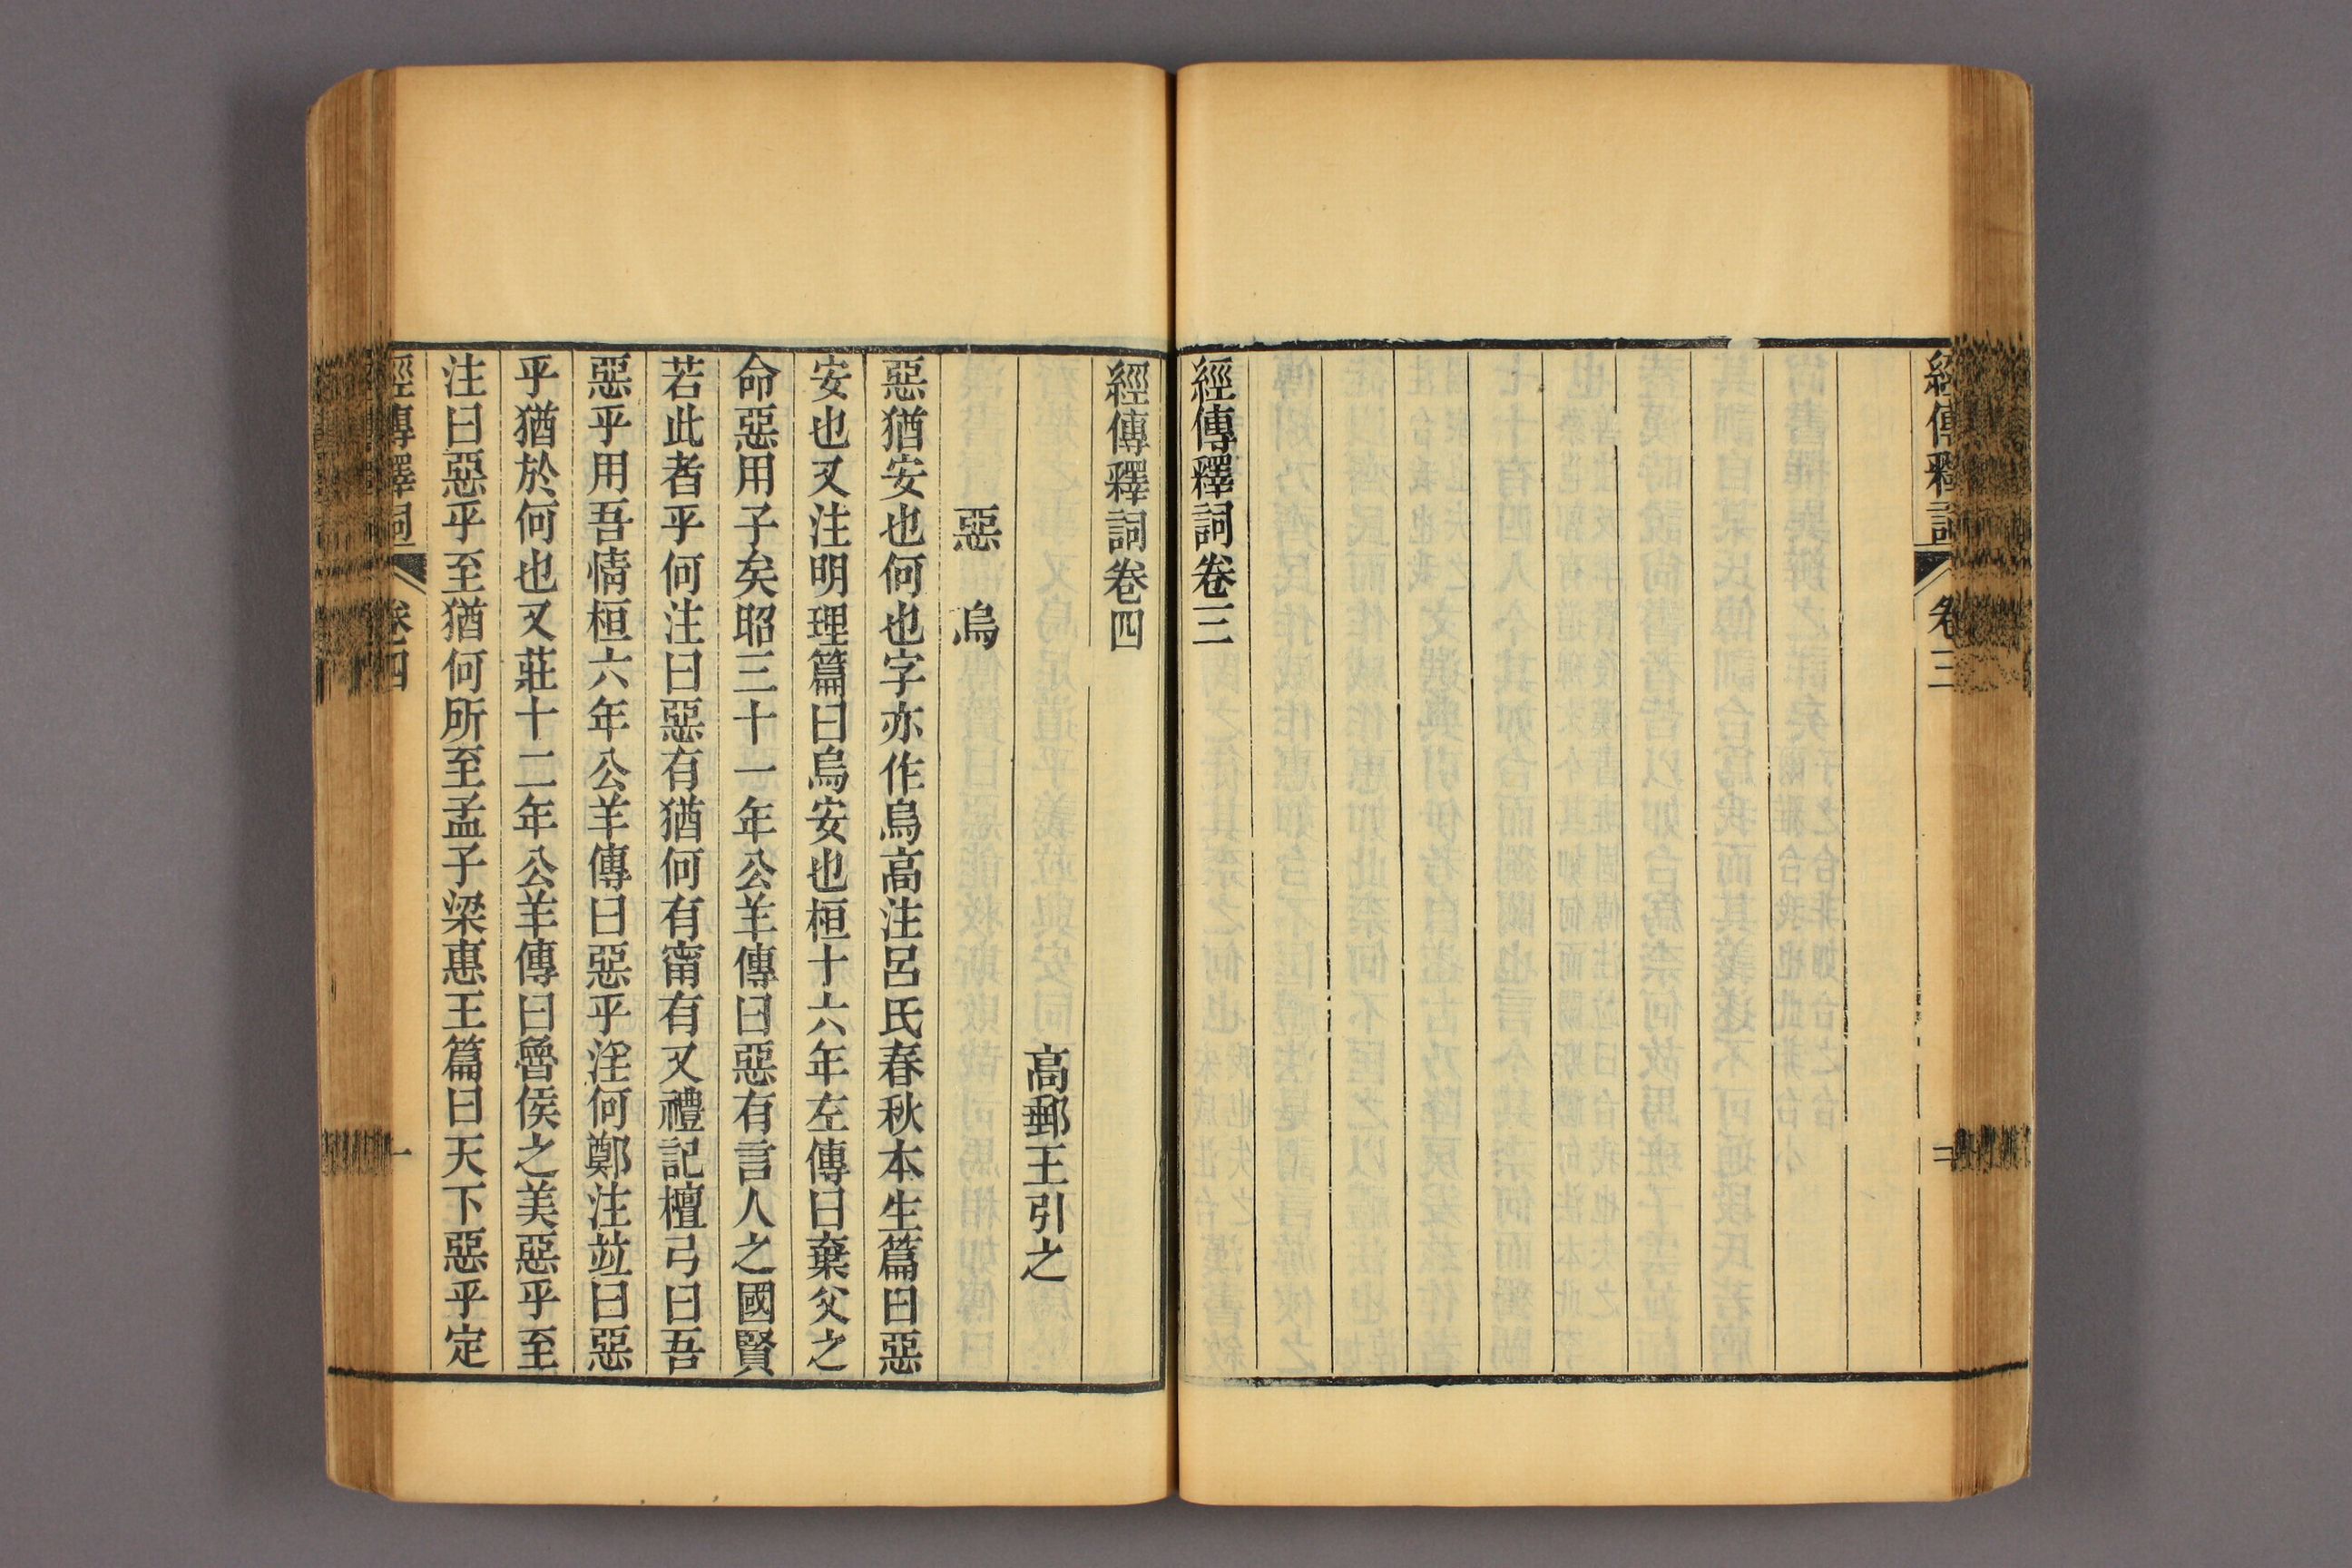 經傳釋詞 卷三
經傳釋詞卷三
經傳釋詞卷四
高郵王引之
惡 烏
惡猶安也何也字亦作烏高注呂氏春秋本生篇曰惡
安也又注明理篇曰烏安也桓十六年左傳曰棄父之
命惡用子矣昭三十一年公羊傳曰惡有言人之國賢
若此者乎何注曰惡有猶何有甯有又禮記檀弓曰吾
惡乎用吾情桓六年公羊傳曰惡乎淫何鄭注竝曰惡
乎猶於何也又莊十二年公羊傳曰魯侯之美惡乎至
注曰惡乎至猶何所至孟子梁惠王篇曰天下惡乎定
經傳釋詞 卷四 一